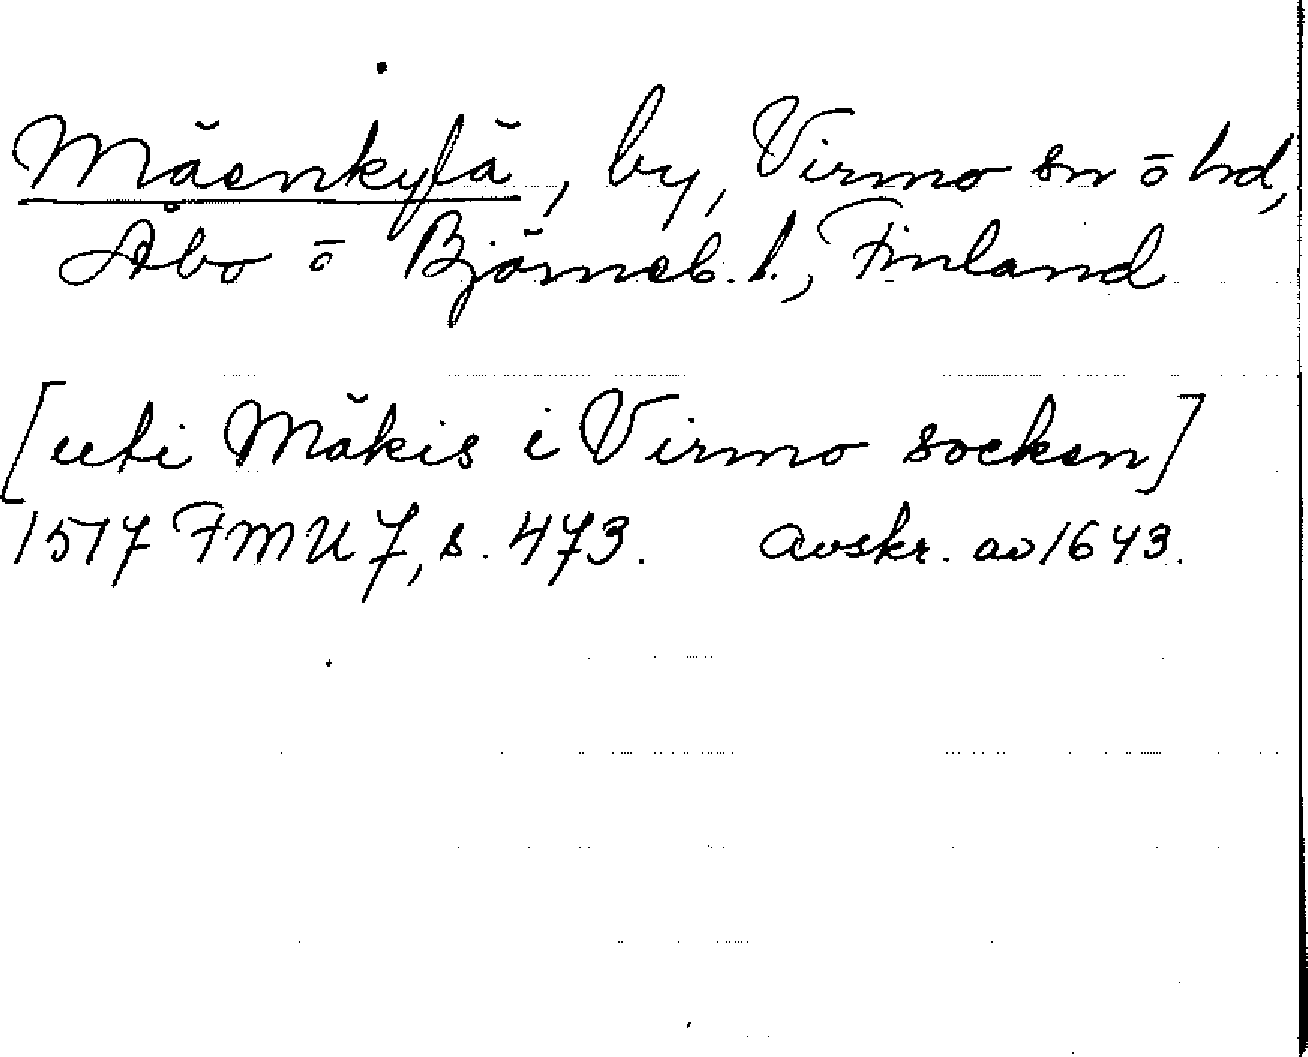 Mäenkylä, by, Virmo sn ö hd,
Åbo ö Björneb. l., Finland
[uti Mäkis i Virmo socken]
1517 FMU 7, s. 473. Avskr. av 1643.